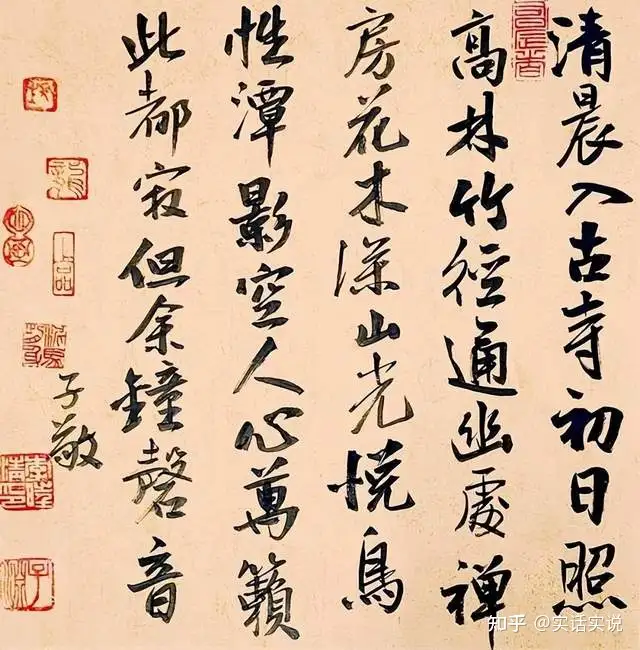 清晨入古寺初日照
高林竹徑通幽處禅
房花木深山光悅鳥
性潭影空人心萬籟
此都寂但余鐘磬音
子敬
上品
知乎 @实话实说